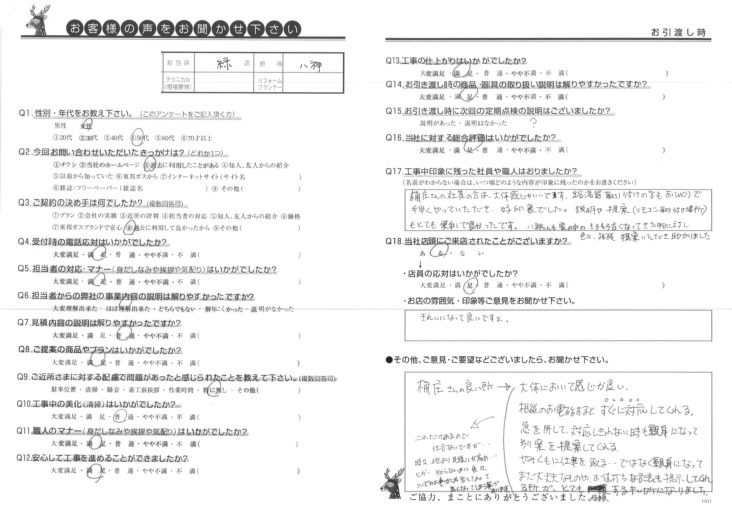 お客様の声をお聞かせ下さい
担当店 緑 店 担当
テクニカル(現場管理) リフォームプランナー
Q1.性別・年代をお教え下さい。(このアンケートをご記入頂く方)
男性 女性
①20代 ②30代 ③40代 ④50代 ⑤60代 ⑥70才以上
Q2.今回お問い合わせいただいたきっかけは?(どれか1つ)
①チラシ ②当社のホームページ ③過去に利用したことがある ④知人、友人からの紹介
⑤以前から知っていた ⑥東邦ガスから ⑦インターネットサイト(サイト名 )
⑧雑誌・フリーペーパー(雑誌名 ) ⑨その他( )
Q3.ご契約の決め手は何でしたか?(複数回答可)
①プラン ②会社の実績 ③近所の評判 ④担当者の対応 ⑤知人、友人からの紹介 ⑥価格
⑦東邦ガスブランドで安心 ⑧過去に利用して良かったから ⑨その他( )
Q4.受付時の電話応対はいかがでしたか?
大変満足・満 足・普 通・やや不満・不 満( )
Q5.担当者の対応・マナー(身だしなみや挨拶や気配り)はいかがでしたか?
大変満足・満 足・普 通・やや不満・不 満( )
Q6.担当者からの弊社の事業内容の説明は解りやすかったですか?
大変理解出来た・ほぼ理解出来た・どちらでもない・解りにくかった・説明がなかった
Q7.見積内容の説明は解りやすかったですか?
大変満足・満 足・普 通・やや不満・不 満( )
Q8.ご提案の商品やプランはいかがでしたか?
大変満足・満 足・普 通・やや不満・不 満( )
Q9.ご近所さまに対する配慮で問題があったと感じられたことを教えて下さい。(複数回答可)
駐車位置・清掃・騒音・着工前挨拶・作業時間・特に無し・その他( )
Q10.工事中の美化(清掃)はいかがでしたか?
大変満足・満 足・普 通・やや不満・不 満( )
Q11.職人のマナー(身だしなみや挨拶や気配り)はいかがでしたか?
大変満足・満 足・普 通・やや不満・不 満( )
Q12.安心して工事を進めることができましたか?
大変満足・満 足・普 通・やや不満・不 満( )
お引渡し時
Q13.工事の仕上がりはいかがでしたか?
大変満足・満 足・普 通・やや不満・不 満( )
Q14.お引き渡し時の商品・器具の取り扱い説明は解りやすかったですか?
大変満足・満 足・普 通・やや不満・不 満( )
Q15.お引き渡し時に次回の定期点検の説明はございましたか?
説明があった・説明はなかった ?
Q16.当社に対する総合評価はいかがでしたか?
大変満足・満 足・普 通・やや不満・不 満( )
Q17.工事中印象に残った社員や職人はおりましたか?
(名前がわからない場合は、いつ頃どのような内容が印象に残ったのかをお書きください)
社員の方は、大体感じがいいです。給湯器取り付けの方も
手早くやっていただき、好印象でした。説明や提案(リモコン
Q18.当社店頭にご来店されたことがございますか?
あ る・な い
↓
・店員の応対はいかがでしたか?
大変満足・満 足・普 通・やや不満・不 満( )
・お店の雰囲気・印象等ご意見をお聞かせ下さい。
きれいになって良いですね。
●その他、ご意見・ご要望などございましたら、お聞かせ下さい。
さんの良い所 → 大体において感じが良い。
相談のお電話するとすぐに対応してくれる。
対応しきれない時も親身になって
別案を提案してくれる。
やみくもに仕事を取る…ではなく親身になって
ご協力、まことにありがとうございました。